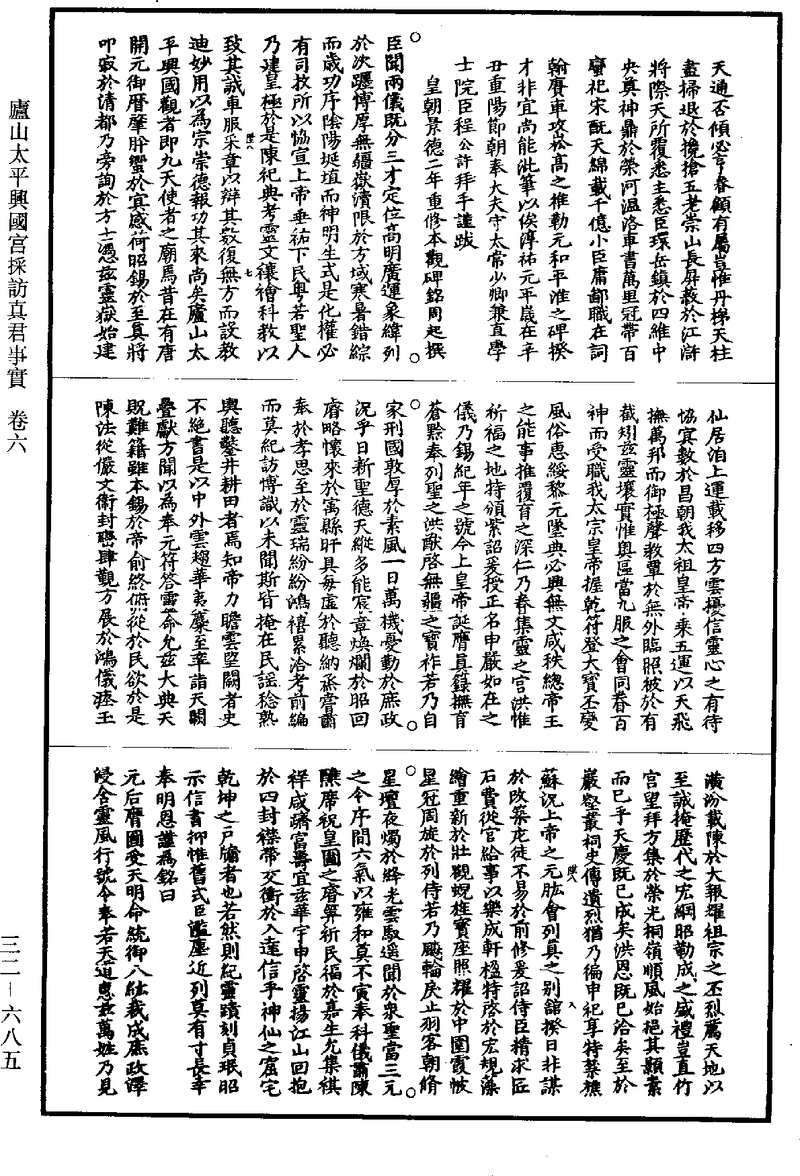 天通否傾必亨眷顧有屬豈惟丹梯天柱
盡掃退於攙搶五老崇山長屏蔽於江滸
將際天所覆悉主悉臣環岳鎮於四維中
央奠神鼎於榮河温洛車書萬里冠帶百
蠻祀宋甋天綿載千億小臣庸鄙職在詞
翰賡車攻崧高之雅勒元和平淮之碑揆
才非宜尚能泚筆以俟淳祐元平歲在辛
丑重陽節朝奉大夫守太常少卿兼直學
士院臣程公許拜手謹跋
皇朝景德二年重修本觀碑銘周起撰
臣聞兩儀既分三才定位高明廣運象緯列
於次躔博厚無疆嶽瀆限於方域寒暑錯綜
而歲功序陰陽埏埴而神明生式是化權必
有司牧所以協宣上帝垂祐下民粵若聖人
乃建皇極於是陳祀典考靈文禳禬科教以
致其誠車服采章以辯其數復無方而設教
迪妙用以為宗崇德報功其來尚矣廬山太
平興國觀者即九天使者之廟焉昔在有唐
開元御曆肇肸蠁於冥感荷昭錫於至真將
叩寂於清都乃旁詢於方士憑茲靈嶽始建
仙居洎上運載移四方雲擾信靈心之有待
協冥數於昌朝我太祖皇帝乘五運以天飛
撫萬邦而御極聲教覃於無外臨照被於有
截矧茲靈壤實惟輿區當九服之會同眷百
神而受職我太宗皇帝握乾符登大寶丕變
風俗惠綏黎元墜典必興無文咸秩總帝王
之能事推覆育之深仁乃眷集靈之宫洪惟
祈福之地特頒紫詔爰授正名申嚴如在之
儀乃錫紀年之號今上皇帝誕膺真籙撫育
蒼黔奉列聖之洪猷啓無疆之寶祚若乃自
家刑國敦厚於素風一日萬機憂勤於庶政
況乎日新聖德天縱多能宸章煥爛於昭回
睿略懷來於寓縣旰具每虛於聽納烝嘗肅
奉於孝思至於靈瑞紛紛鴻禧累洽考前編
而莫紀訪博識以未聞斯皆掩在民謠稔熟
輿聽鑿井耕田者焉知帝力瞻雲望闕者史
不絕書是以中外雲趨華夷麇至率詣天闕
疊獻方聞以為奉元符答靈命允茲大典天
既難籍雖本錫於帝俞終俯從於民欲於是
陳法從儼文衛封巒肆覲方展於鴻儀瘞玉
潢汾載陳於大報羅祖宗之丕烈薦天地以
至誠掩歷代之宏綱昭勤成之盛禮豈直竹
宫望拜方集於榮光桐嶺順風始挹其顥素
而已乎天慶既已成矣洪恩既已洽矣至於
巖壑叢祠史傳遺烈猶乃徧申祀享特禁樵
蘇況上帝之元肱會列真之别舘揆日非謀
於改築庀徒不易於前修爰詔侍臣精求匠
石費從官給事以樂成軒楹特啓於宏規藻
繪重新於壯觀蜺旌寶座照耀於中闈霞帔
星冠周旋於列侍若乃飇輪戾止羽客朝脩
星壇夜燭於絳光雲馭遥聞於衆聖當三元
之令序間六氣以雍和莫不寅奉科儀肅陳
醮席祝皇圖之睿筭祈民福於嘉生允集祺
祥咸躋富壽宜茲華宇申啓靈揚江山回抱
於四封襟帶交衝於入達信乎神仙之窟宅
乾坤之戶牖者也若然則紀靈蹟刻貞珉昭
示信書抑惟舊式臣濫塵近列莫有寸長幸
奉明恩謹為銘曰
元后膺圖受天明命統御八紘裁成庶政澤
浸含靈風行號令奉若天道惠茲萬姓乃見
廬山太平興國宫採訪真君事實 卷六
三二—六八五